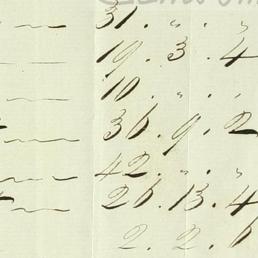 31 . " . "
19 . 3 . 4
10 . " . "
36 . 9 . 2
42 . " . "
26 . 13 . 4
2 . 2 . 6